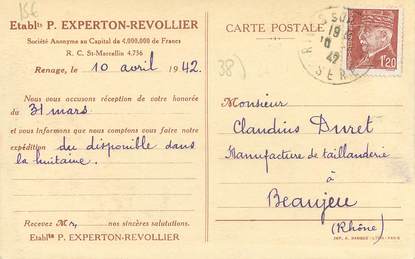 15€
Etablts P. EXPERTON-REVOLLIER
Société Anonyme au Capital de 4.000.000 de Francs
R. C. St-Marcellin 4.756
Renage, le 10 avril 1942.
Nous vous accusons réception de votre honorée
du 31 mars
et vous informons que nous comptons vous faire notre
expédition du disponible dans
la huitaine.
Recevez Mr, nos sincères salutations.
Etablts P. EXPERTON-REVOLLIER
CARTE POSTALE
38)
ISÈRE
1f20
Monsieur
Claudius Duret
Manufacture de taillanderie
à
Beaujeu
(Rhône)